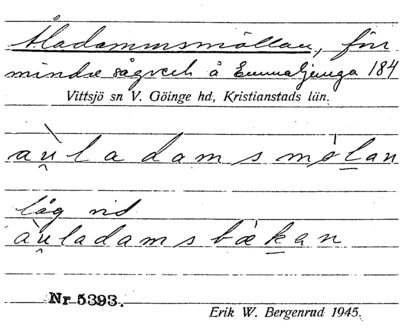 Åladammsmöllan, för
mindre sågverk å Emmaljunga 184
Vittsjö sn V. Göinge hd, Kristianstads län.
au̯ladamsmölan
låg vid
àu̯ladamsbækan
Nr 5393.
Erik W. Bergenrud 1945.